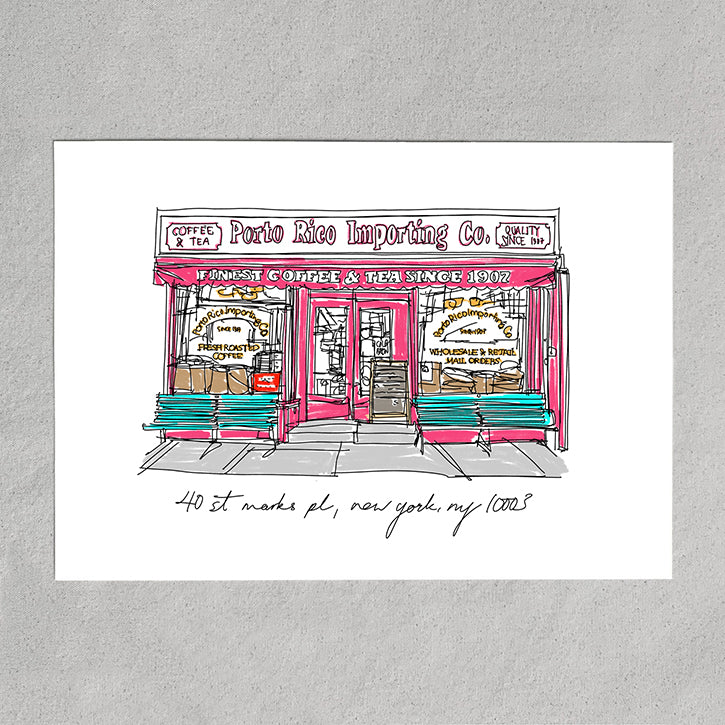 COFFEE
& TEA
Porto Rico Importing Co.
QUALITY
SINCE 1907
FINEST COFFEE & TEA SINCE 1907
Porto Rico Importing Co
SINCE 1907
FRESH ROASTED
COFFEE
Porto Rico Importing Co
WHOLESALE & RETAIL
MAIL ORDERS
40 st marks pl, new york, ny 10003